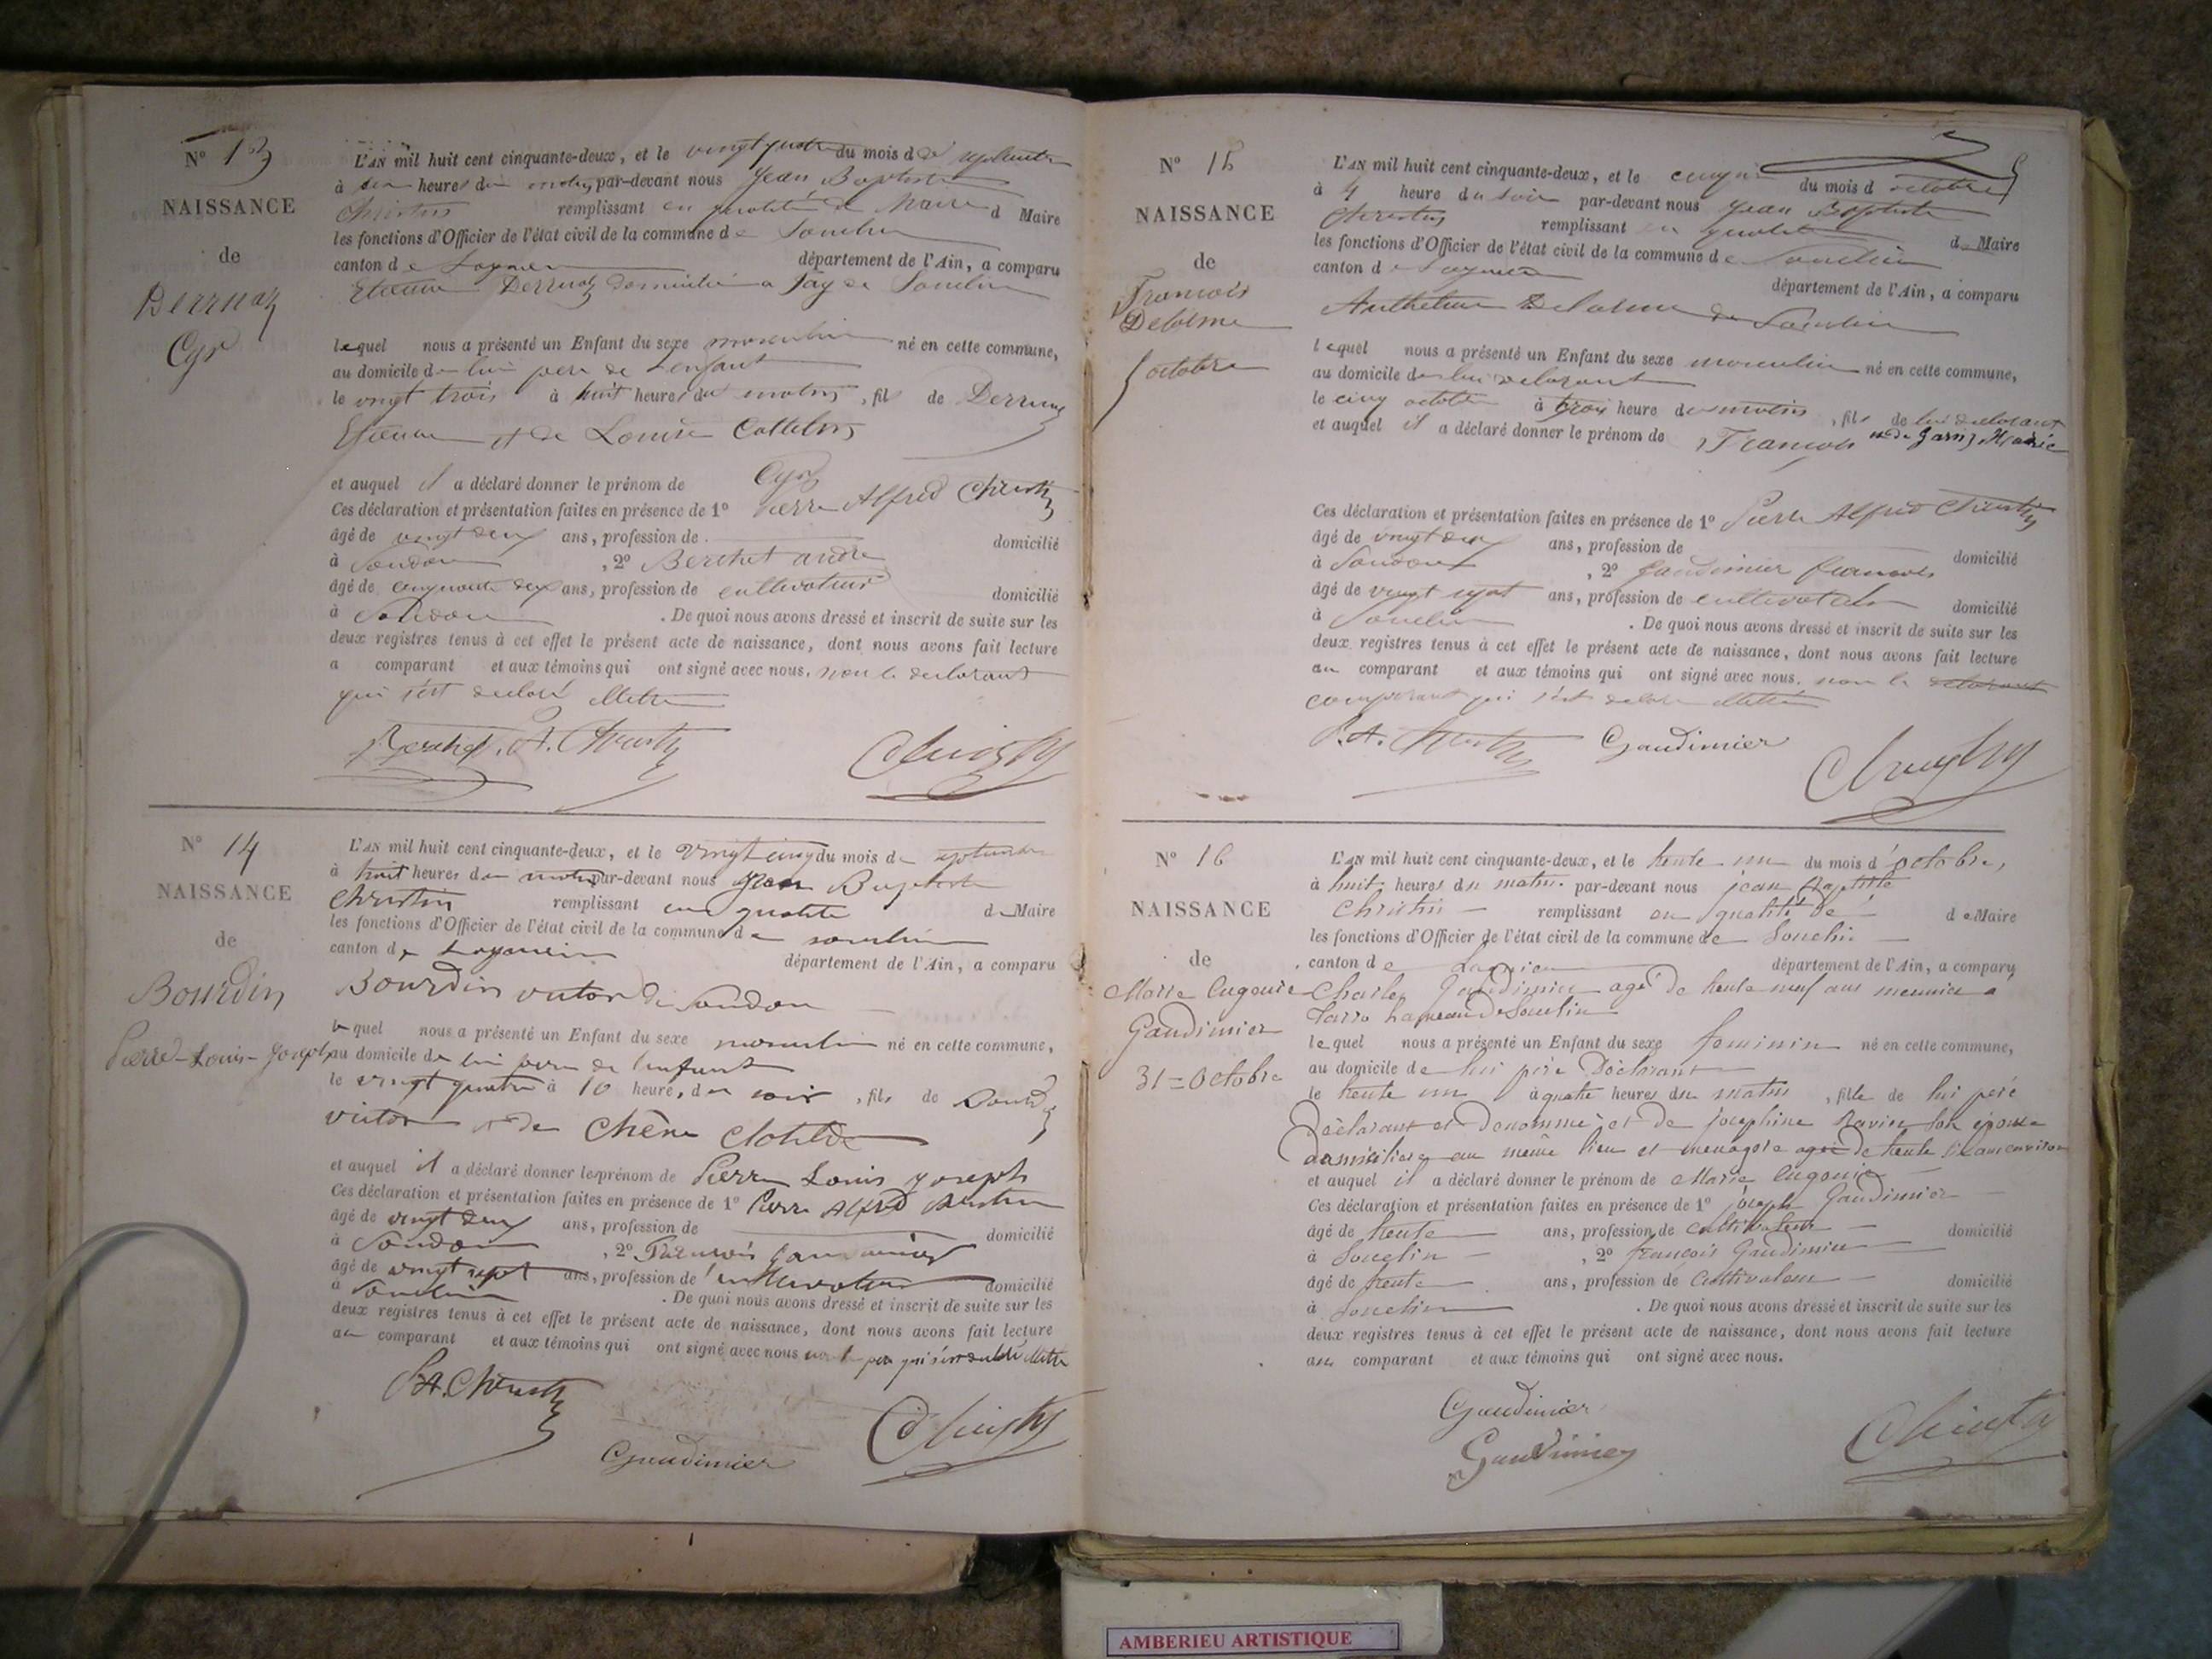 N° 13
NAISSANCE
de
Derruaz
Cyr
L'AN mil huit cent cinquante-deux, et le vingt quatre du mois de septembre
à heures du matin par-devant nous Jean Baptiste
Christin remplissant en qualité de Maire d Maire
les fonctions d'Officier de l'état civil de la commune de Souclin
canton de Lagnieu département de l'Ain, a comparu
Etienne Derruaz domicilié a Fay de Souclin
lequel nous a présenté un Enfant du sexe masculin né en cette commune,
au domicile de lui pere de l'enfant
le vingt trois à huit heures du matin, fils de Derruaz
Etienne et de Louise
et auquel il a déclaré donner le prénom de Cyr
Ces déclaration et présentation faites en présence de 1° Pierre Alfred Christin
âgé de vingt deux ans, profession de domicilié
à Soudon, 2° Berthet andré
âgé de cinquante deux ans, profession de cultivateur domicilié
à Soudon. De quoi nous avons dressé et inscrit de suite sur les
deux registres tenus à cet effet le présent acte de naissance, dont nous avons fait lecture
a comparant et aux témoins qui ont signé avec nous, non le declarant
qui s'est declaré illetré
Berthet P. A. Christin Christin
N° 14
NAISSANCE
de
Bourdin
Pierre-Louis-Joseph
L'AN mil huit cent cinquante-deux, et le vingt cinq du mois de septembre
à huit heures du matin par-devant nous Jean Baptiste
Christin remplissant en qualité de Maire
les fonctions d'Officier de l'état civil de la commune de Souclin
canton de Lagnieu département de l'Ain, a comparu
Bourdin victor de Soudon
lequel nous a présenté un Enfant du sexe masculin né en cette commune,
au domicile de lui pere de l'enfant
le vingt quatre à 10 heure, du soir, fils de Bourdin
victor et de Chêne Clotilde
et auquel il a déclaré donner les prénom de Pierre Louis joseph
Ces déclaration et présentation faites en présence de 1° Pierre Alfred Christin
âgé de vingt deux ans, profession de domicilié
à Soudon, 2° François Gaudimier
âgé de vingt sept ans, profession de cultivateur domicilié
à Souclin. De quoi nous avons dressé et inscrit de suite sur les
deux registres tenus à cet effet le présent acte de naissance, dont nous avons fait lecture
au comparant et aux témoins qui ont signé avec nous non le pere qui s'est declaré illetré
P.A. Christin
Gaudimier Christin
N° 15
NAISSANCE
de
Francois
Delolme
5 octobre
L'AN mil huit cent cinquante-deux, et le cinq du mois d octobre
à 4 heure du soir par-devant nous Jean Baptiste
Christin remplissant en qualité de Maire
les fonctions d'Officier de l'état civil de la commune de Souclin
canton de Lagnieu département de l'Ain, a comparu
Anthelme Delolme de Souclin
lequel nous a présenté un Enfant du sexe masculin né en cette commune,
au domicile de lui declarant
le cinq octobre à trois heure du matin, fils de lui declarant
et auquel il a déclaré donner le prénom de Francois Marie
Ces déclaration et présentation faites en présence de 1° Pierre Alfred Christin
âgé de vingt deux ans, profession de domicilié
à Soudon, 2° Gaudimier francois
âgé de vingt sept ans, profession de cultivateur domicilié
à Souclin. De quoi nous avons dressé et inscrit de suite sur les
deux registres tenus à cet effet le présent acte de naissance, dont nous avons fait lecture
au comparant et aux témoins qui ont signé avec nous. non le declarant
comparant qui s'est declaré illetré
P.A. Christin Gaudimier Christin
N° 16
NAISSANCE
de
Marie Eugenie
Gaudimier
31 = Octobre
L'AN mil huit cent cinquante-deux, et le trente un du mois d'octobre,
à huit heures du matin par-devant nous jean Baptiste
Christin remplissant en qualité de de Maire
les fonctions d'Officier de l'état civil de la commune de Souclin
canton de Lagnieu département de l'Ain, a comparu
Charles Gaudimier agé de trente neuf ans meunier a
hameau de Souclin
lequel nous a présenté un Enfant du sexe feminin né en cette commune,
au domicile de lui père Déclarant
le trente un à quatre heures du matin, fille de lui peré
Déclarant et Denommé et de josephine Ravier son épouse
domiciliée au même lieu et menagere agée de trente ans environ
et auquel il a déclaré donner le prénom de Marie Eugenie
Ces déclaration et présentation faites en présence de 1° joseph Gaudimier
âgé de trente ans, profession de cultivateur domicilié
à Souclin, 2° françois Gaudimier
âgé de trente ans, profession de cultivateur domicilié
à Souclin. De quoi nous avons dressé et inscrit de suite sur les
deux registres tenus à cet effet le présent acte de naissance, dont nous avons fait lecture
au comparant et aux témoins qui ont signé avec nous.
Gaudimier
Gaudimier Christin
AMBERIEU ARTISTIQUE